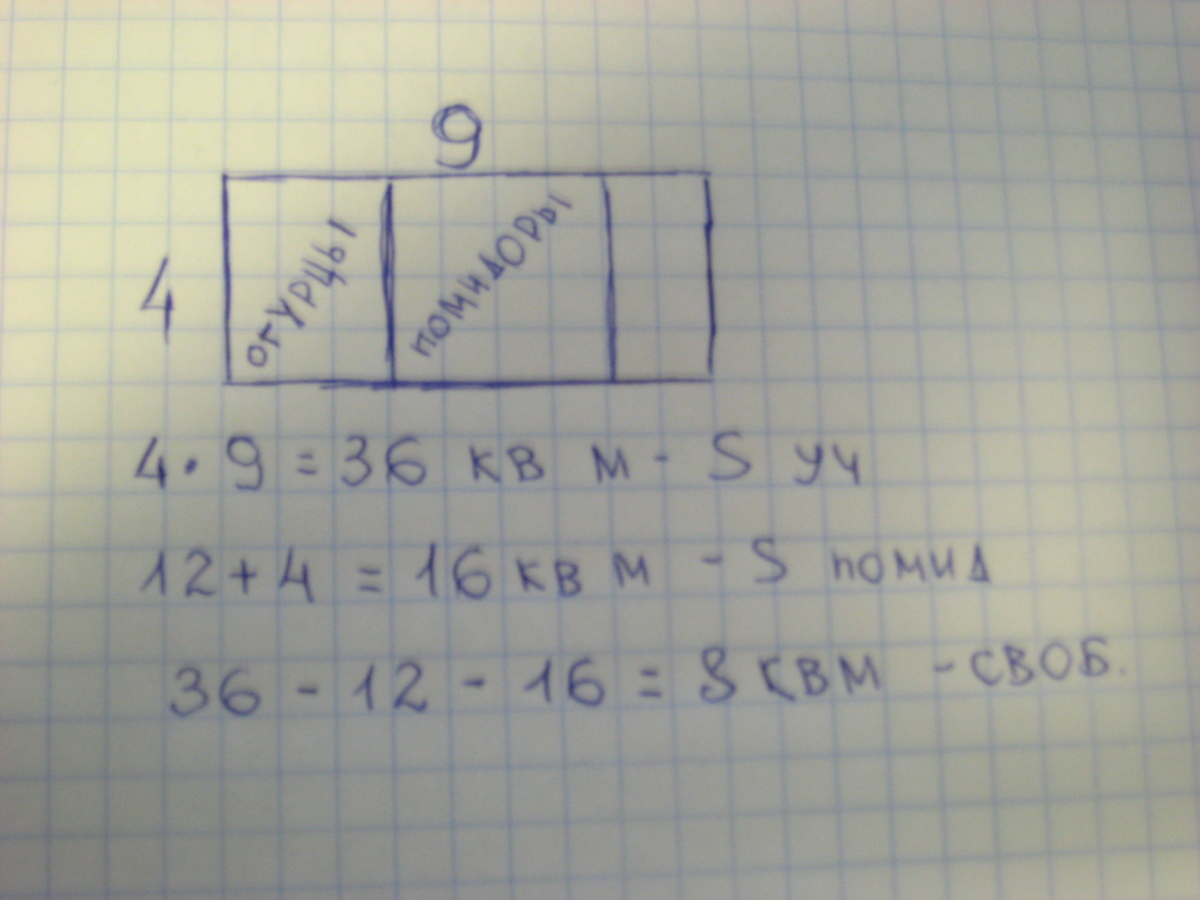 9
4
огурцы
помидоры
4 · 9 = 36 кв м - S уч
12 + 4 = 16 кв м - S помид
36 - 12 - 16 = 8 кв м - своб.